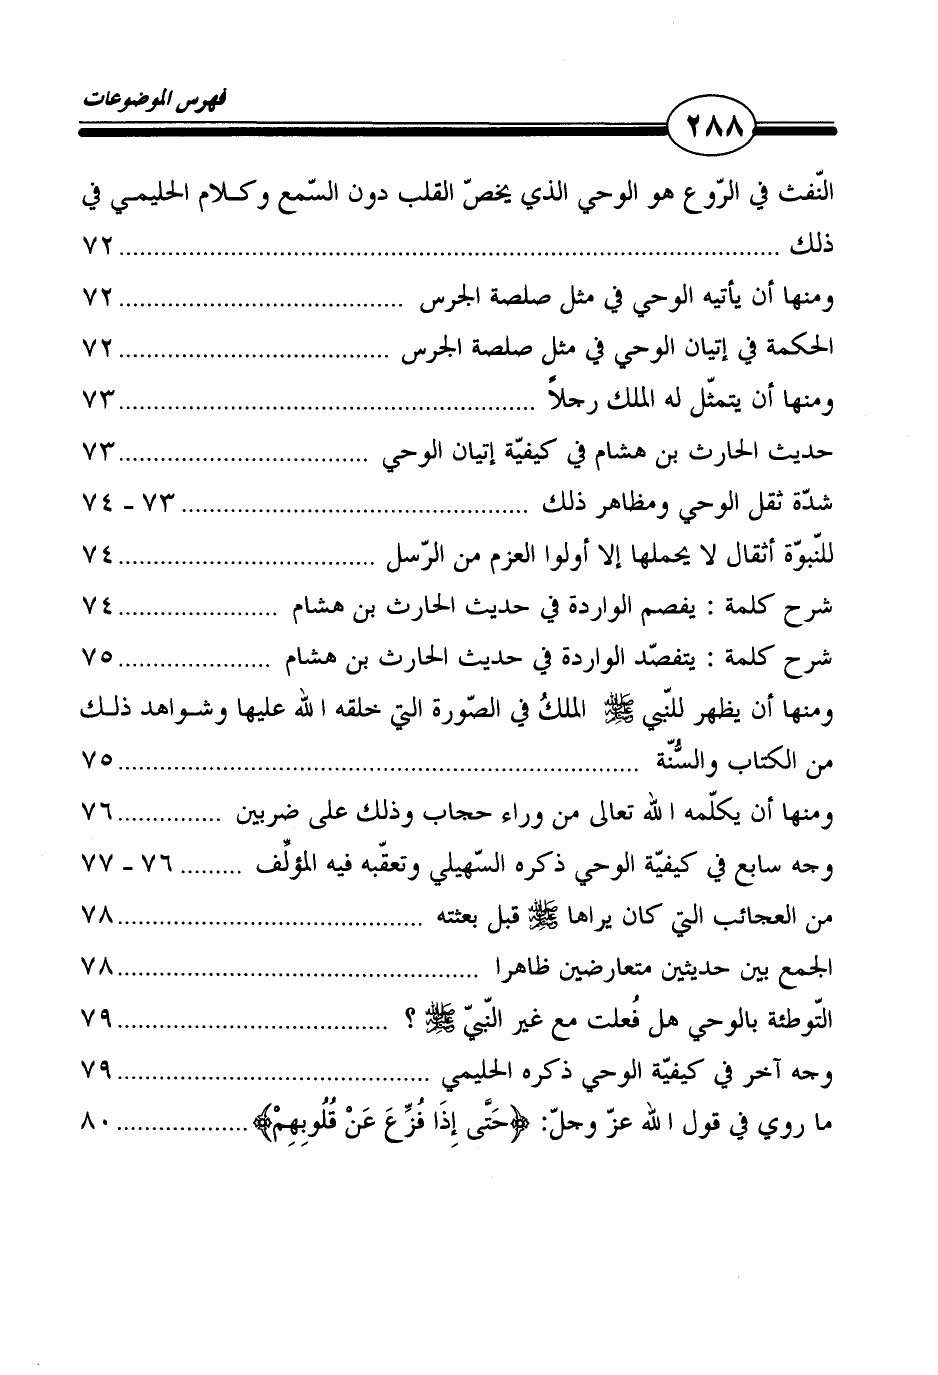 فهرس الموضوعات
٢٨٨
النّفث في الرّوع هو الوحي الذي يخصّ القلب دون السّمع وكلام الحليمي في
ذلك ........................................ ٧٢
ومنها أن يأتيه الوحي في مثل صلصة الجرس ........................................ ٧٢
الحكمة في إتيان الوحي في مثل صلصة الجرس ........................................ ٧٢
ومنها أن يتمثّل له الملك رجلاً ........................................ ٧٣
حديث الحارث بن هشام في كيفيّة إتيان الوحي ........................................ ٧٣
شدّة ثقل الوحي ومظاهر ذلك ........................................ ٧٣ - ٧٤
للنّبوّة أثقال لا يحملها إلا أولوا العزم من الرّسل ........................................ ٧٤
شرح كلمة : يفصم الواردة في حديث الحارث بن هشام .................... ٧٤
شرح كلمة : يتفصّد الواردة في حديث الحارث بن هشام .................... ٧٥
ومنها أن يظهر للنّبي ﷺ الملكُ في الصّورة التي خلقه الله عليها وشواهد ذلك
من الكتاب والسُّنّة ........................................ ٧٥
ومنها أن يكلّمه الله تعالى من وراء حجاب وذلك على ضربين ............... ٧٦
وجه سابع في كيفيّة الوحي ذكره السّهيلي وتعقّبه فيه المؤلِّف ......... ٧٦ - ٧٧
من العجائب التي كان يراها ﷺ قبل بعثته ........................................ ٧٨
الجمع بين حديثين متعارضين ظاهرا ........................................ ٧٨
التّوطئة بالوحي هل فُعلت مع غير النّبيّ ﷺ ؟ ........................................ ٧٩
وجه آخر في كيفيّة الوحي ذكره الحليمي ........................................ ٧٩
ما روي في قول الله عزّ وجلّ: ﴿حَتَّى إِذَا فُزِّعَ عَنْ قُلُوبِهِمْ﴾ .................. ٨٠